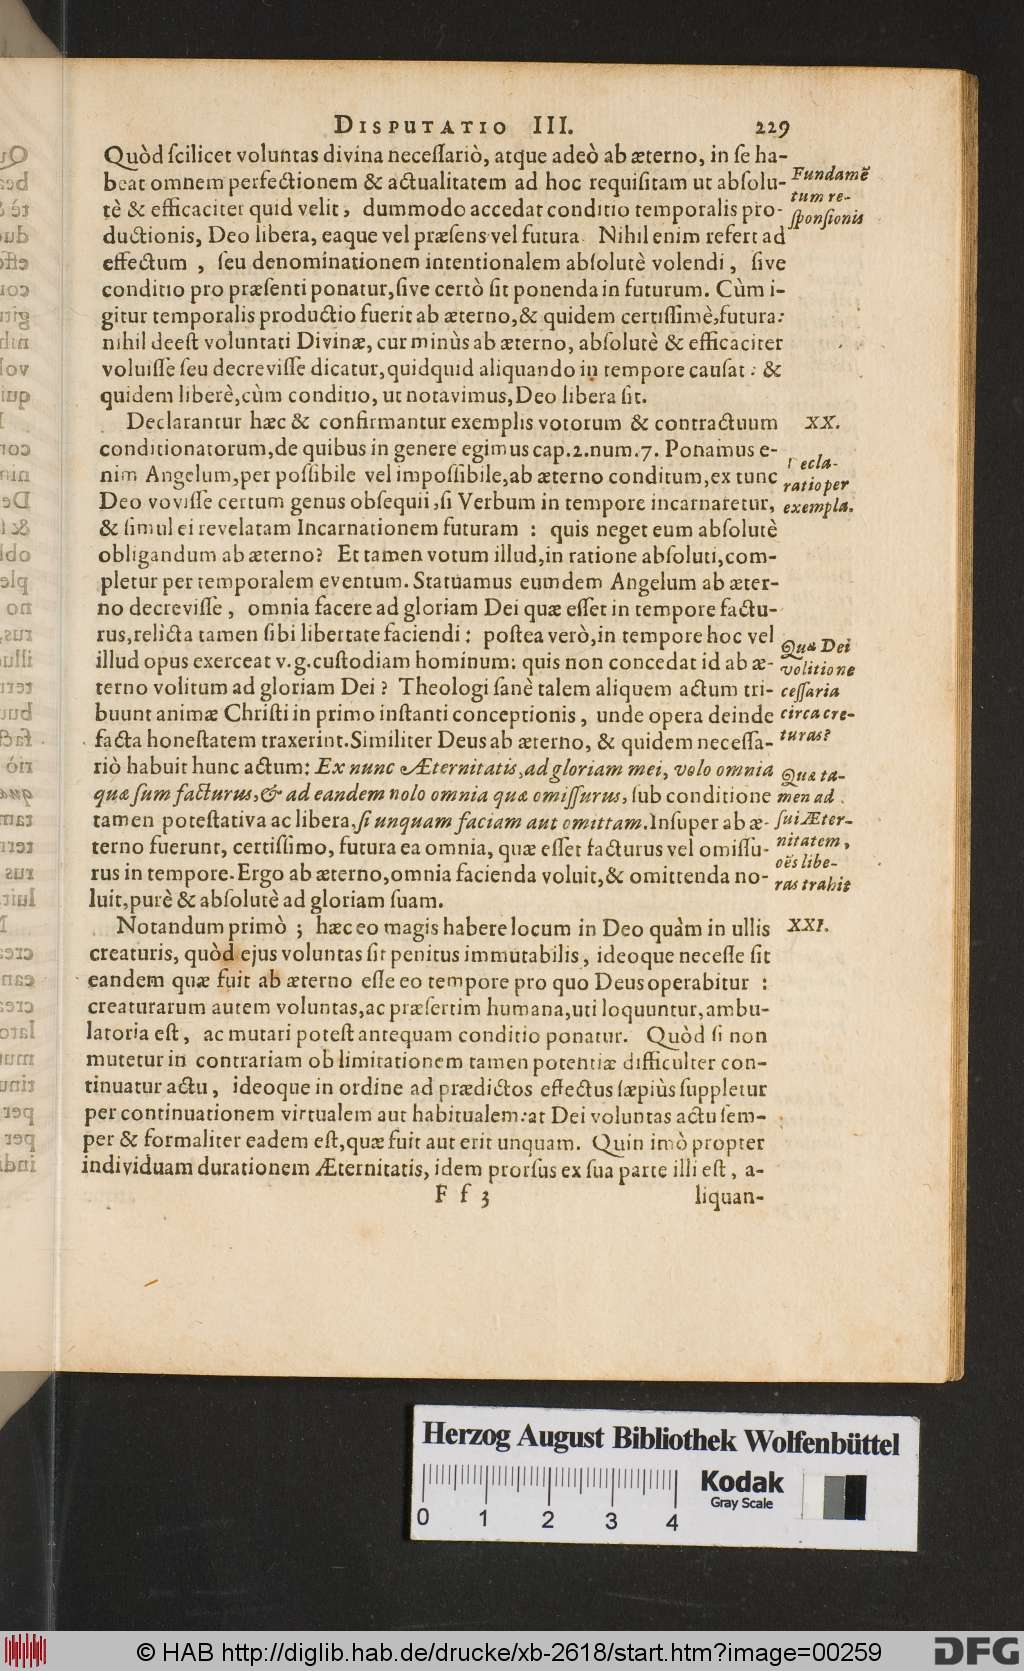 DISPUTATIO III. 229
Quòd ſcilicet voluntas divina neceſſariò, atque adeò ab æterno, in ſe ha-
beat omnem perfectionem & actualitatem ad hoc requiſitam ut abſolu-
tè & efficaciter quid velit, dummodo accedat conditio temporalis pro-
ductionis, Deo libera, eaque vel præſens vel futura. Nihil enim refert ad
effectum, ſeu denominationem intentionalem abſolutè volendi, ſive
conditio pro præſenti ponatur, ſive certò ſit ponenda in futurum. Cùm i-
gitur temporalis productio fuerit ab æterno, & quidem certiſſimè, futura:
nihil deeſt voluntati Divinæ, cur minùs ab æterno, abſolutè & efficaciter
voluiſſe ſeu decreviſſe dicatur, quidquid aliquando in tempore cauſat: &
quidem liberè, cùm conditio, ut notavimus, Deo libera ſit.
Fundamē
tum re-
ſponſionis
Declarantur hæc & confirmantur exemplis votorum & contractuum
conditionatorum, de quibus in genere egimus cap. 2. num. 7. Ponamus e-
nim Angelum, per poſſibile vel impoſſibile, ab æterno conditum, ex tunc
Deo voviſſe certum genus obſequii, ſi Verbum in tempore incarnaretur,
& ſimul ei revelatam Incarnationem futuram : quis neget eum abſolutè
obligandum ab æterno? Et tamen votum illud, in ratione abſoluti, com-
pletur per temporalem eventum. Statuamus eumdem Angelum ab æter-
no decreviſſe, omnia facere ad gloriam Dei quæ eſſet in tempore factu-
rus, relicta tamen ſibi libertate faciendi: poſtea verò, in tempore hoc vel
illud opus exerceat v. g. cuſtodiam hominum: quis non concedat id ab æ-
terno volitum ad gloriam Dei? Theologi ſanè talem aliquem actum tri-
buunt animæ Chriſti in primo inſtanti conceptionis, unde opera deinde
facta honeſtatem traxerint. Similiter Deus ab æterno, & quidem neceſſa-
riò habuit hunc actum: Ex nunc Æternitatis, ad gloriam mei, volo omnia
quæ ſum facturus, & ad eandem nolo omnia quæ omiſſurus, ſub conditione
tamen poteſtativa ac libera, ſi unquam faciam aut omittam. Inſuper ab æ-
terno fuerunt, certiſſimo, futura ea omnia, quæ eſſet facturus vel omiſſu-
rus in tempore. Ergo ab æterno, omnia facienda voluit, & omittenda no-
luit, purè & abſolutè ad gloriam ſuam.
XX.
Decla-
ratio per
exempla.
Qua Dei
volitione
ceſſaria
circa cre-
turas?
Qua ta-
men ad
ſui Æter-
nitatem,
oēs libe-
ras trahit
Notandum primò ; hæc eo magis habere locum in Deo quàm in ullis
creaturis, quòd ejus voluntas ſit penitus immutabilis, ideoque neceſſe ſit
eandem quæ fuit ab æterno eſſe eo tempore pro quo Deus operabitur :
creaturarum autem voluntas, ac præſertim humana, uti loquuntur, ambu-
latoria eſt, ac mutari poteſt antequam conditio ponatur. Quòd ſi non
mutetur in contrariam ob limitationem tamen potentiæ difficulter con-
tinuatur actu, ideoque in ordine ad prædictos effectus ſæpiùs ſuppletur
per continuationem virtualem aut habitualem: at Dei voluntas actu ſem-
per & formaliter eadem eſt, quæ fuit aut erit unquam. Quin imò propter
individuam durationem Æternitatis, idem prorſus ex ſua parte illi eſt, a-
XXI.
F f 3 liquan-
Herzog August Bibliothek Wolfenbüttel
Kodak
Gray Scale
0 1 2 3 4
© HAB http://diglib.hab.de/drucke/xb-2618/start.htm?image=00259
DFG